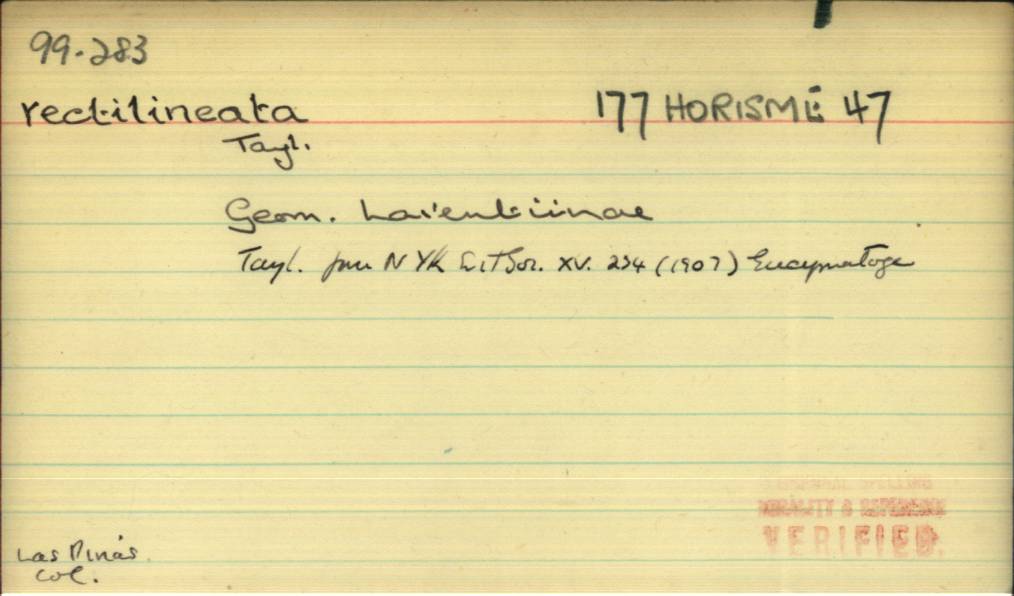 99.283
rectilineata
177 HORISME 47
Tayl.
Geom. Larentiinae
Tayl. Jnu N Yk Ent Soc. XV. 234 (1907) Eucymatoge
ORIGINAL SPELLING
LOCALITY & REFERENCE
VERIFIED.
Las Pinas.
Col.